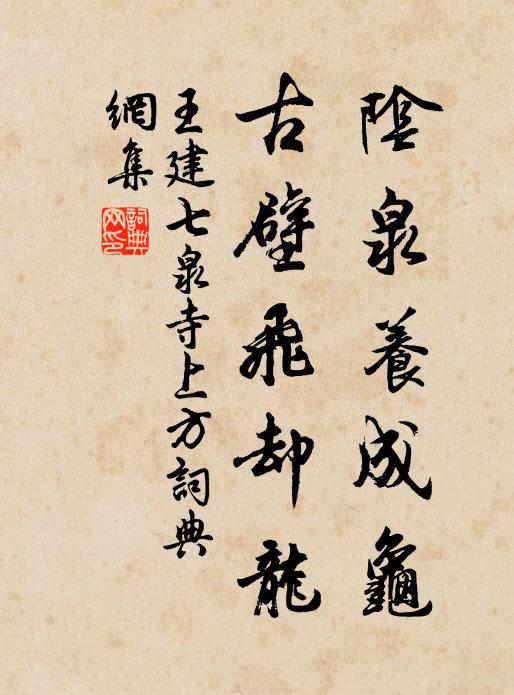 陰泉養成龜
古壁飛却龍
王建七泉寺上方詞典
網集
詞典網印